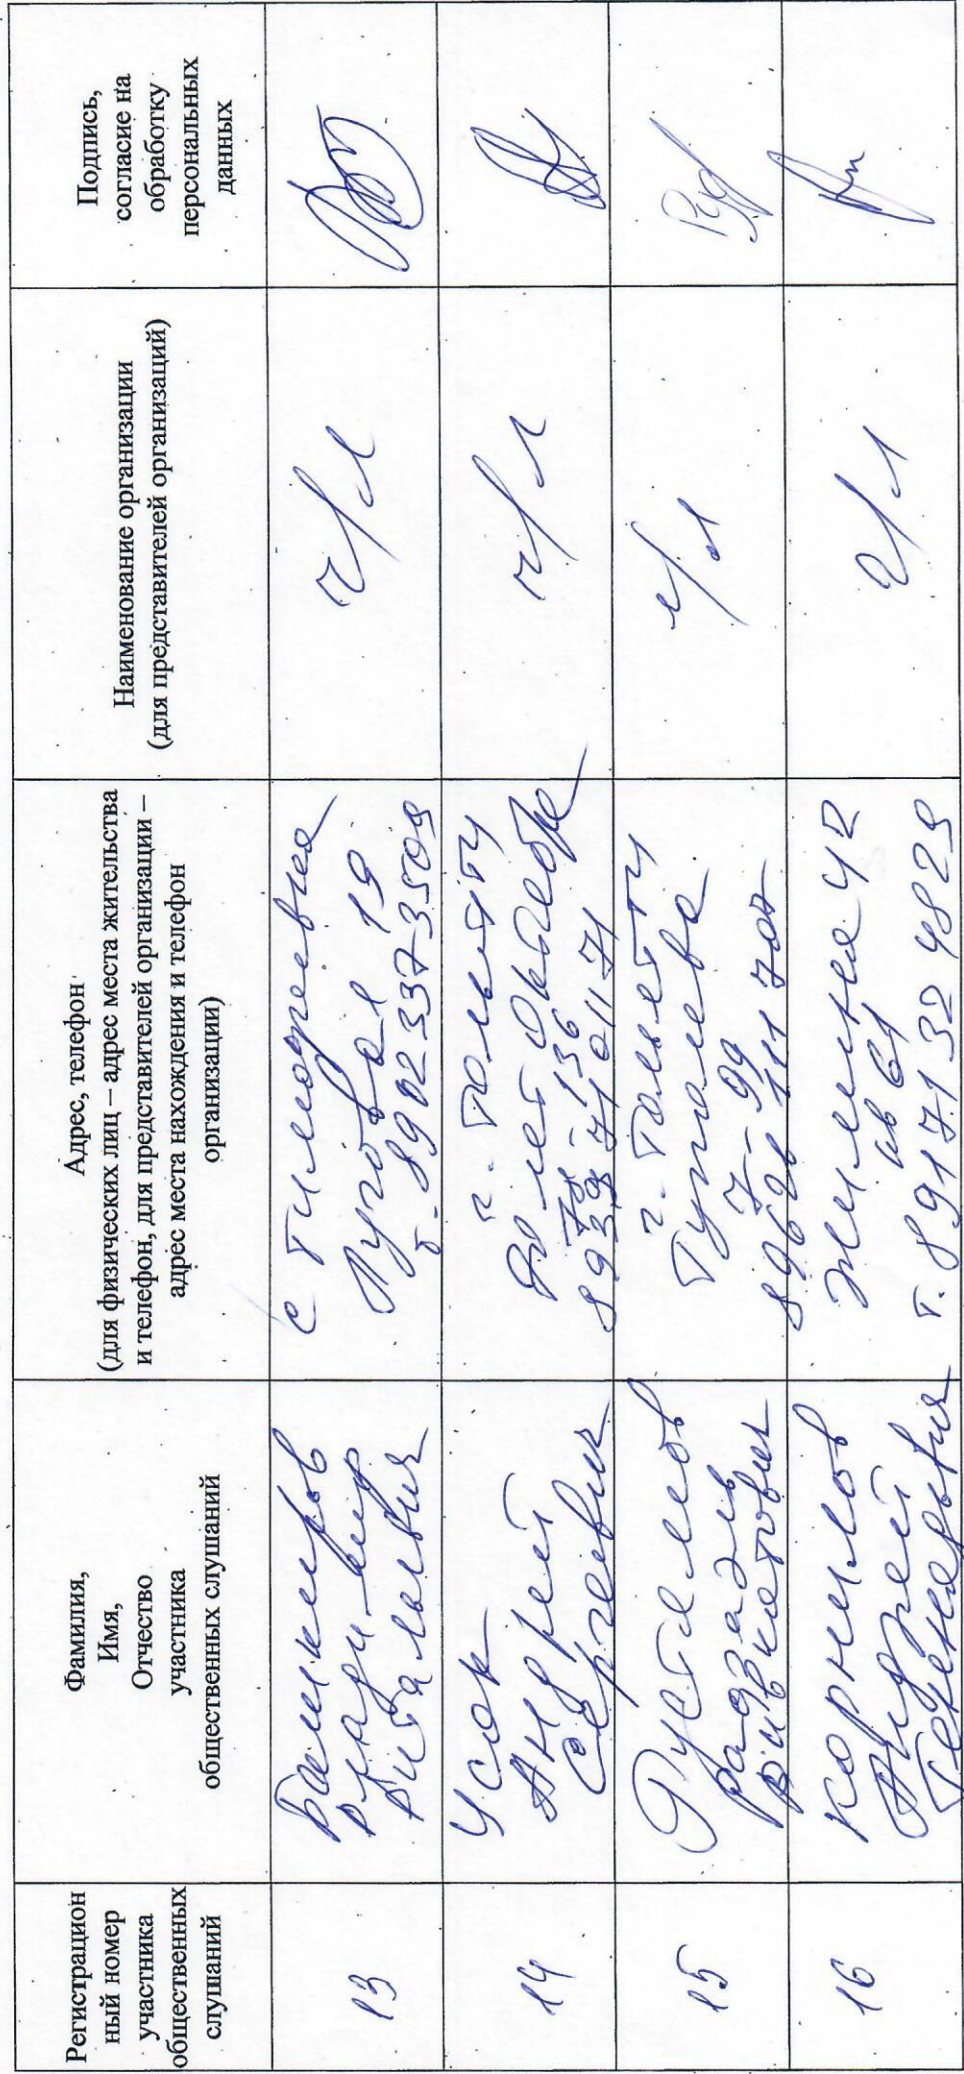 Регистрацион
ный номер
участника
общественных
слушаний
Фамилия,
Имя,
Отчество
участника
общественных слушаний
Адрес, телефон
(для физических лиц – адрес места жительства
и телефон, для представителей организации –
адрес места нахождения и телефон
организации)
Наименование организации
(для представителей организаций)
Подпись,
согласие на
обработку
персональных
данных
13
Владимир
Витальевич
с Тимофеевка
Луговая 19
т. 89023373509
ч/л
14
Усок
Андрей
Сергеевич
г. Тольятти
40 лет Октября
136
89397101171
ч/л
15
Рустамов
г. Тольятти
Туполева
7-99
ч/л
16
Корнилов
Андрей
Геннадьевич
Жилина 42
кв 61
т. 89171324829
ч/л